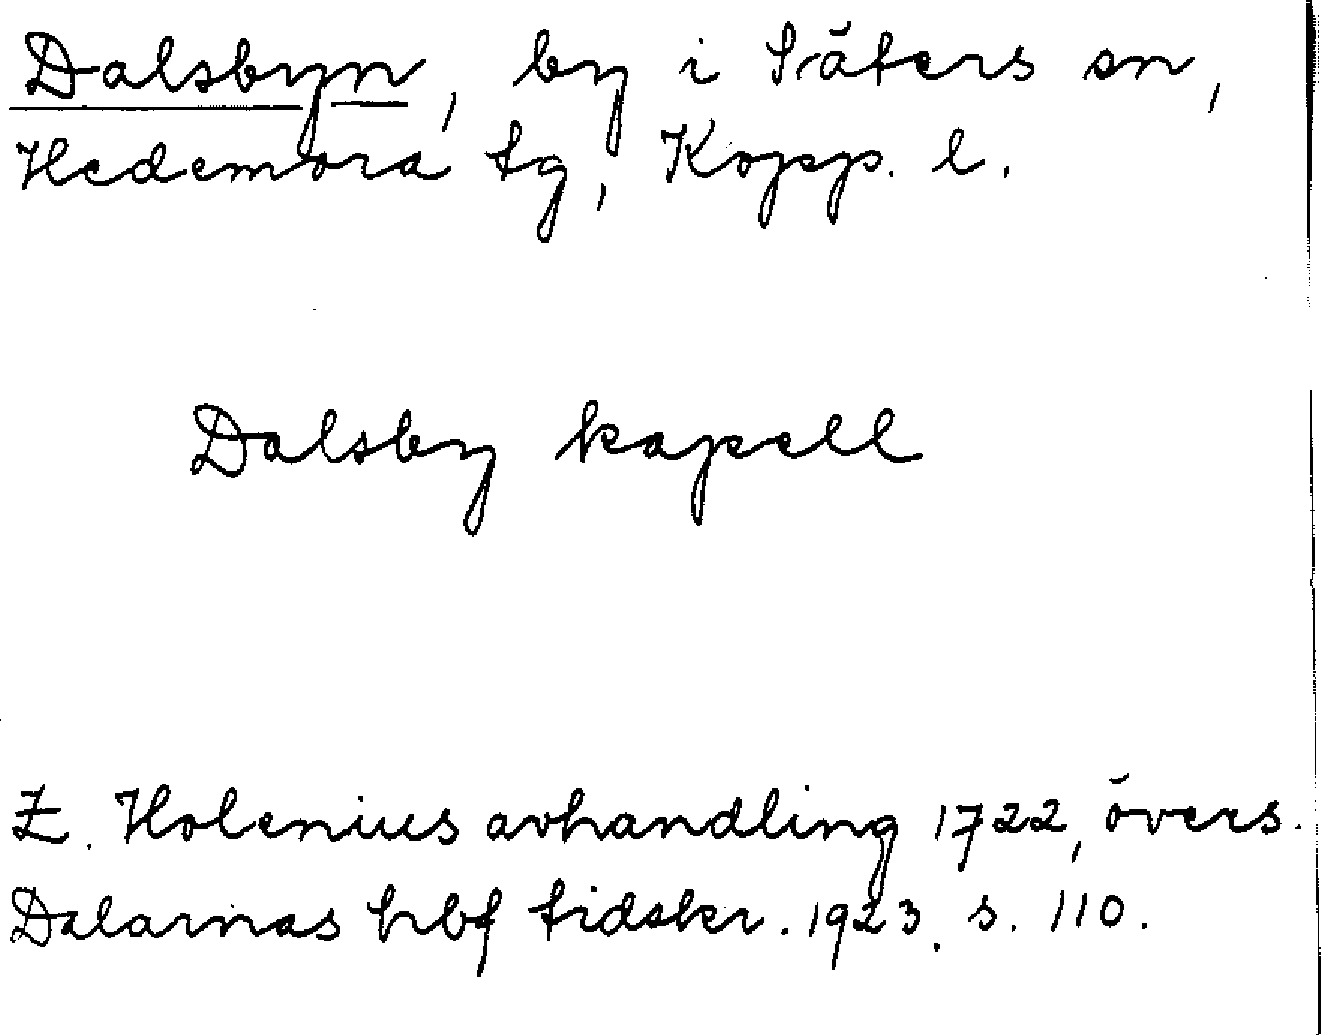 Dalsbyn, by i Säters sn,
Hedemora tg, Kopp. l.
Dalsby kapell
Z. Holenius avhandling 1722, övers.
Dalarnas hbf tidskr. 1923. s. 110.